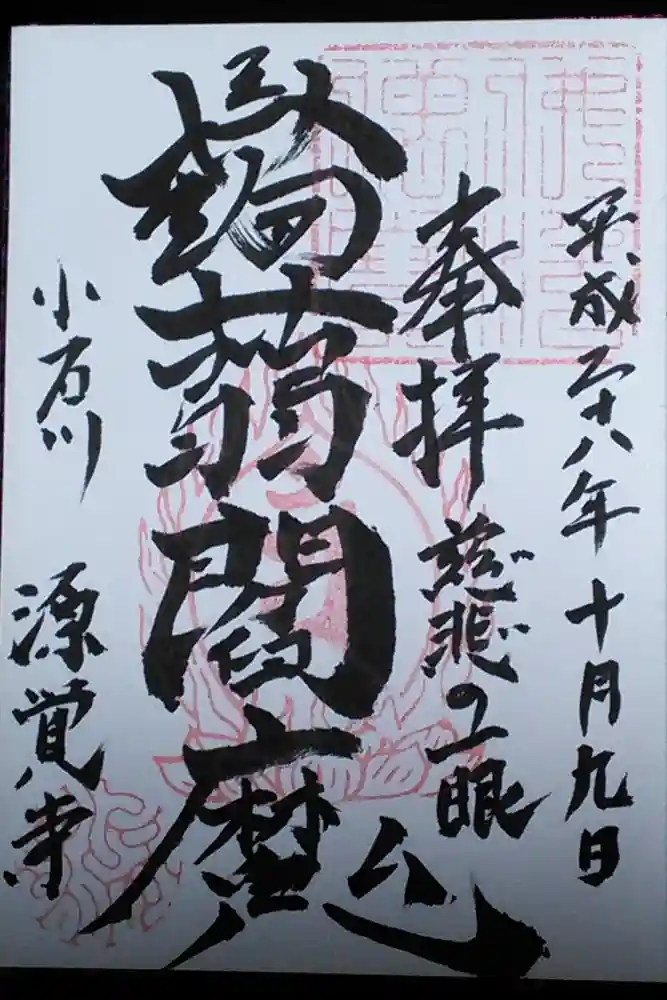 平成二十八年十月九日
奉拝
慈悲の眼
蒻閻魔
小石川
源覚寺